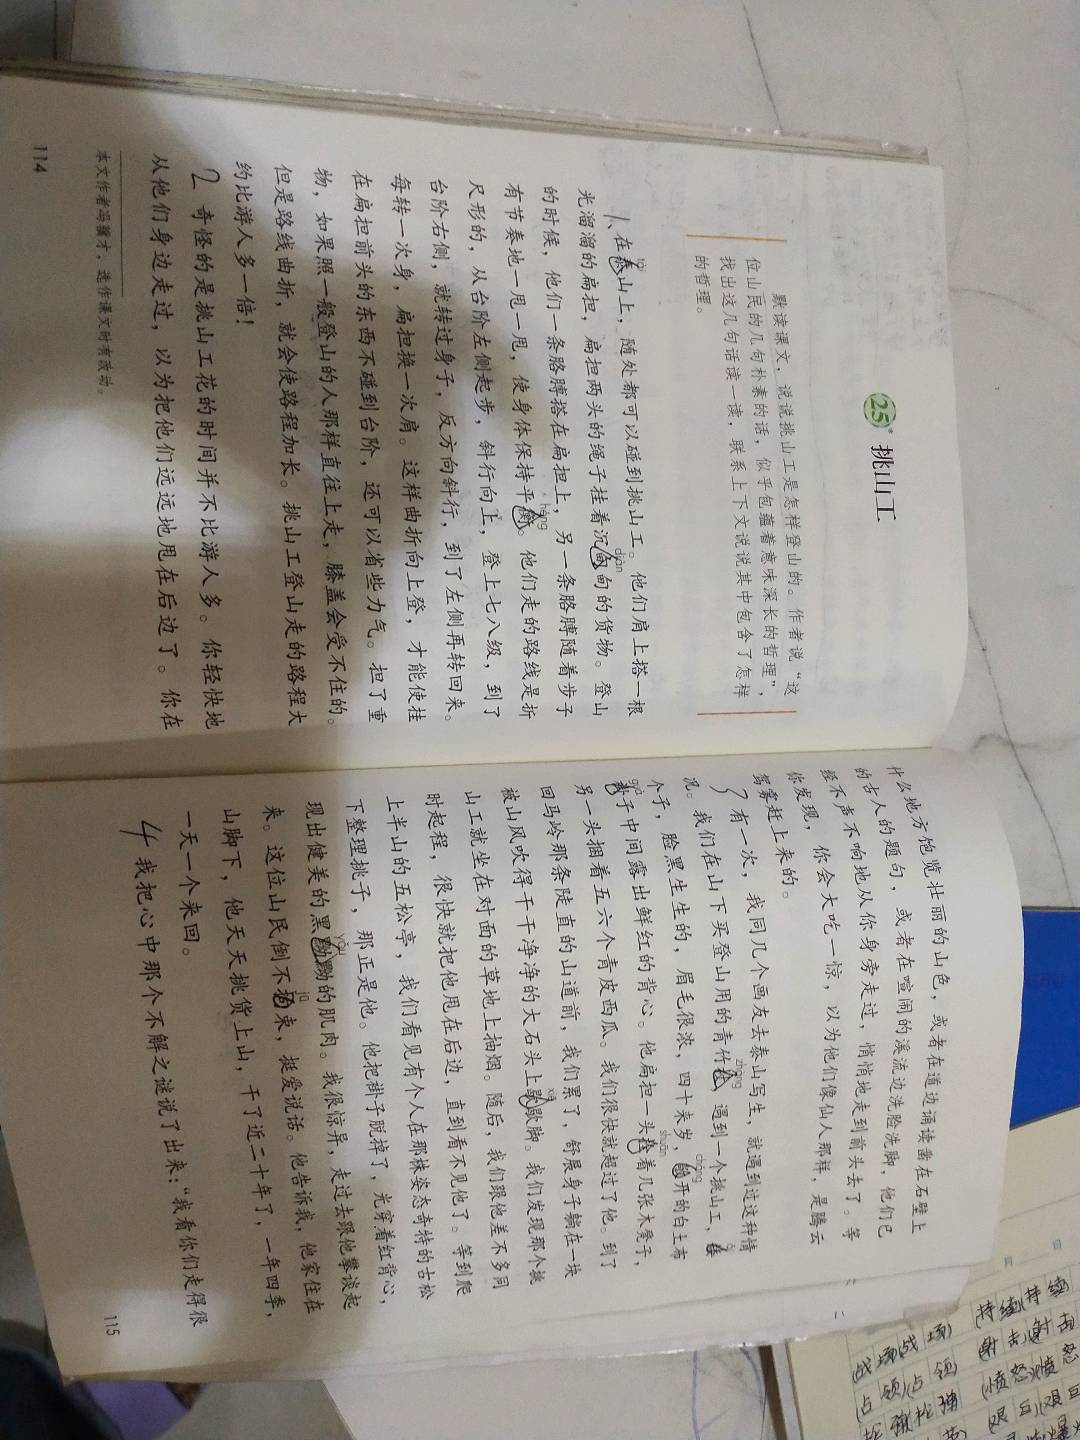 25* 挑山工
默读课文，说说挑山工是怎样登山的。作者说，“这
位山民的几句朴素的话，似乎包蕴着意味深长的哲理”，
找出这几句话读一读，联系上下文说说其中包含了怎样
的哲理。
1、在泰山上，随处都可以碰到挑山工。他们肩上搭一根
光溜溜的扁担，扁担两头的绳子挂着沉甸甸的货物。登山
的时候，他们一条胳膊搭在扁担上，另一条胳膊随着步子
有节奏地一甩一甩，使身体保持平衡。他们走的路线是折
尺形的，从台阶左侧起步，斜行向上，登上七八级，到了
台阶右侧，就转过身子，反方向斜行，到了左侧再转回来。
每转一次身，扁担换一次肩。这样曲折向上登，才能使挂
在扁担前头的东西不碰到台阶，还可以省些力气。担了重
物，如果照一般登山的人那样直往上走，膝盖会受不住的。
但是路线曲折，就会使路程加长。挑山工登山走的路程大
约比游人多一倍！
2 奇怪的是挑山工花的时间并不比游人多。你轻快地
从他们身边走过，以为把他们远远地甩在后边了。你在
本文作者冯骥才，选作课文时有改动。
114
什么地方饱览壮丽的山色，或者在道边诵读凿在石壁上
的古人的题句，或者在喧闹的溪流边洗脸洗脚，他们已
经不声不响地从你身旁走过，悄悄地走到前头去了。等
你发现，你会大吃一惊，以为他们像仙人那样，是腾云
驾雾赶上来的。
3 有一次，我同几个画友去泰山写生，就遇到过这种情
况。我们在山下买登山用的青竹杖，遇到一个挑山工，矮
个子，脸黑生生的，眉毛很浓，四十来岁，敞开的白土布
褂子中间露出鲜红的背心。他扁担一头拴着几张木凳子，
另一头捆着五六个青皮西瓜。我们很快就超过了他。到了
回马岭那条陡直的山道前，我们累了，舒展身子躺在一块
被山风吹得干干净净的大石头上歇歇脚。我们发现那个挑
山工就坐在对面的草地上抽烟。随后，我们跟他差不多同
时起程，很快就把他甩在后边，直到看不见他了。等到爬
上半山的五松亭，我们看见有个人在那株姿态奇特的古松
下整理挑子，那正是他。他把褂子脱掉了，光穿着红背心，
现出健美的黑黝黝的肌肉。我很惊异，走过去跟他攀谈起
来。这位山民倒不拘束，挺爱说话。他告诉我，他家住在
山脚下，他天天挑货上山，干了近二十年了，一年四季，
一天一个来回。
4 我把心中那个不解之谜说了出来：“我看你们走得很
115
(战场战场) (持续)(持续
占领)(占领 (射击)(射击
(愤怒)(愤怒